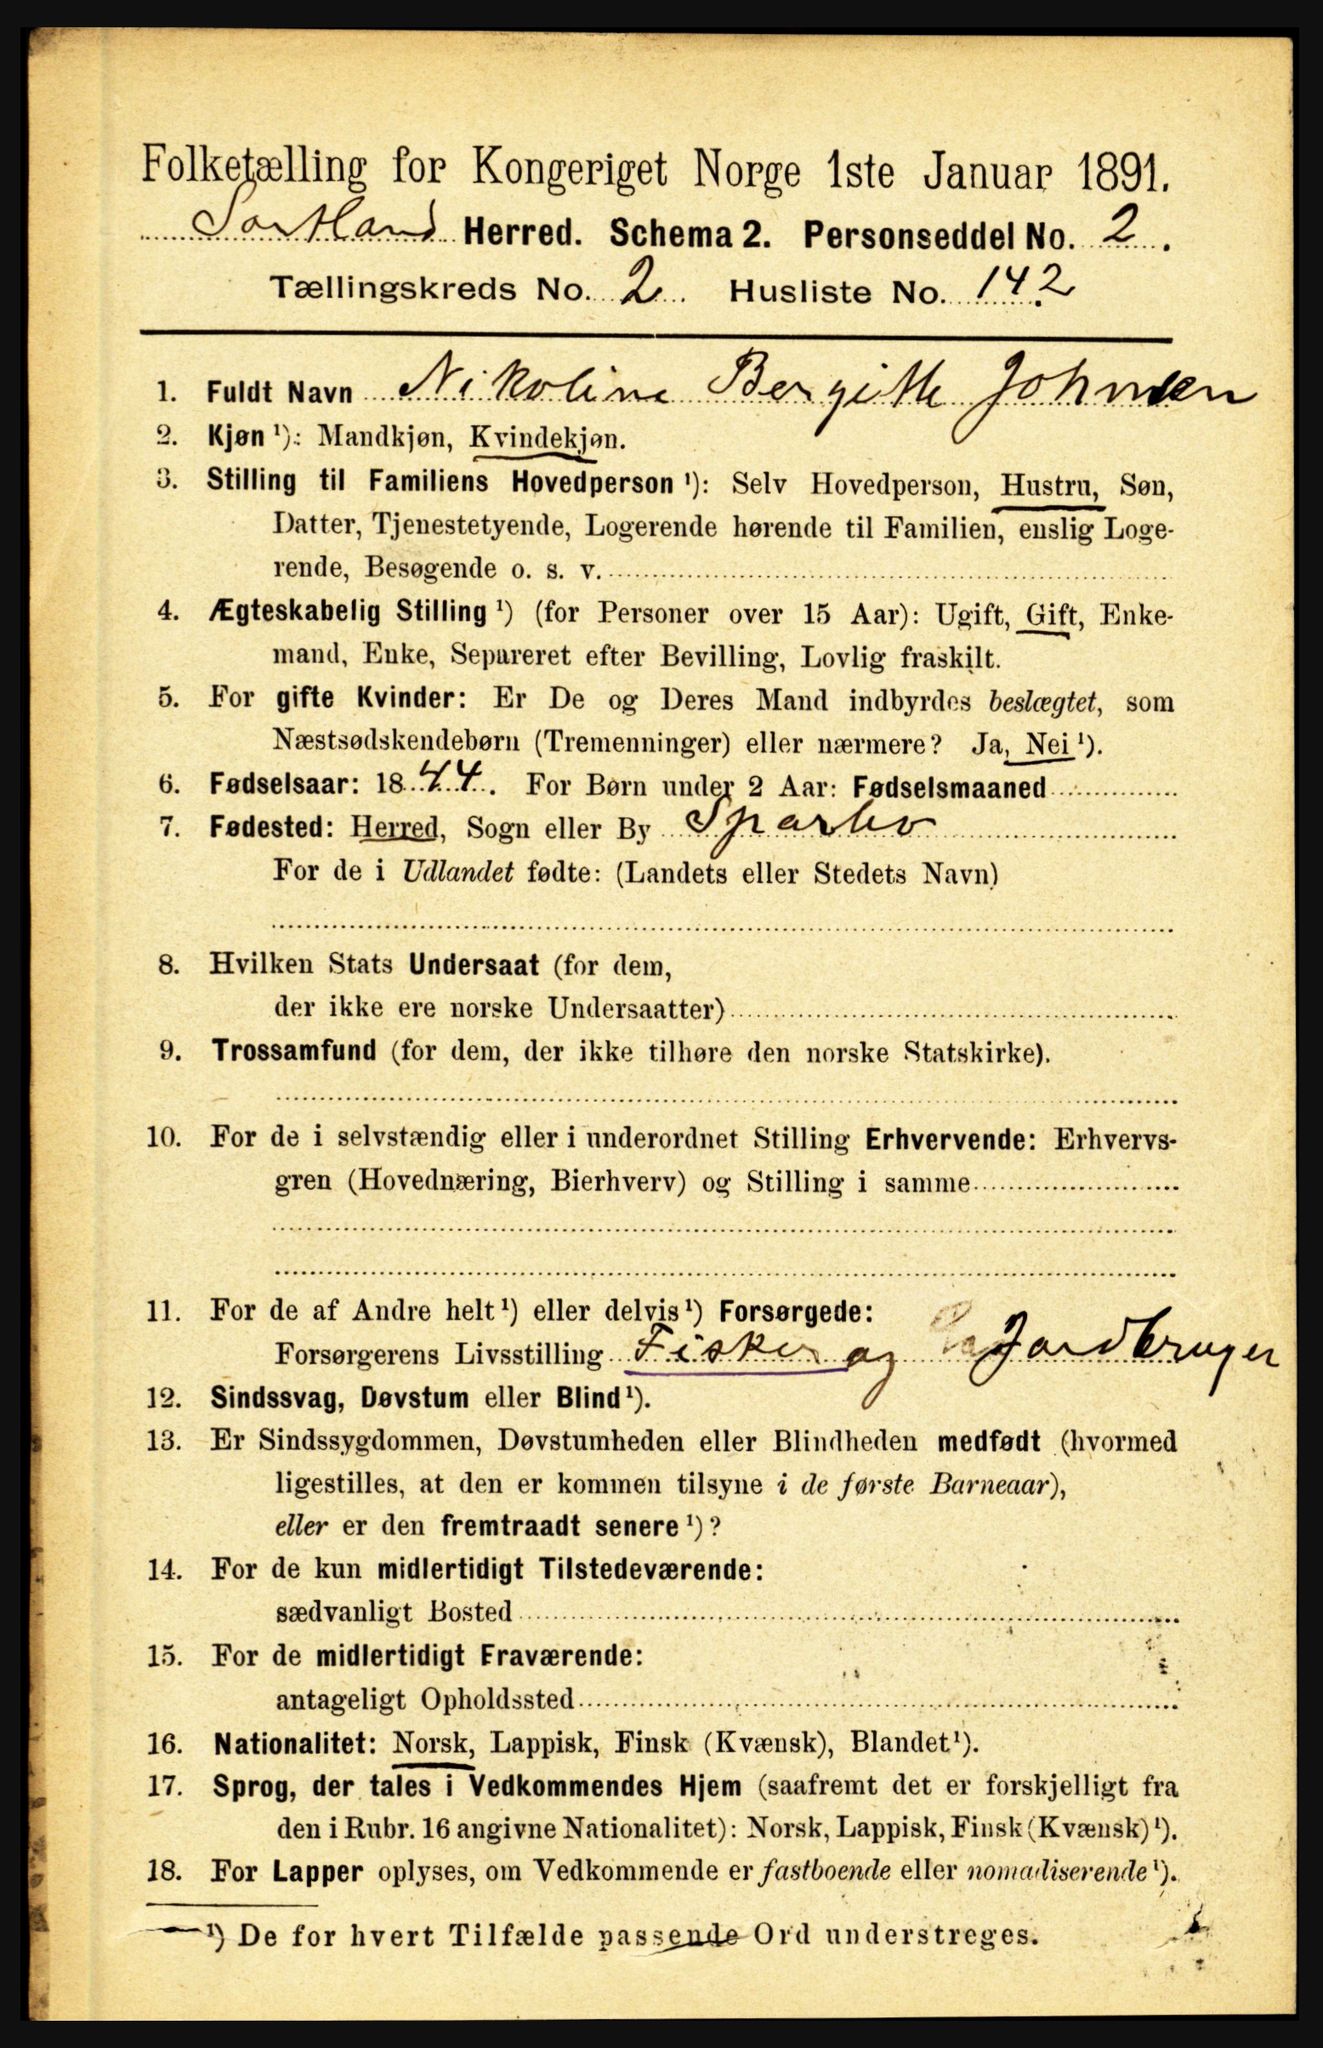 Folketælling for Kongeriget Norge 1ste Januar 1891.
Sortland Herred. Schema 2. Personseddel No. 2.
Tællingskreds No. 2. Husliste No. 142
1. Fuldt Navn Nikoline Bergitte Johnsen
2. Kjøn ¹): Mandkjøn, Kvindekjøn.
3. Stilling til Familiens Hovedperson ¹): Selv Hovedperson, Hustru, Søn,
Datter, Tjenestetyende, Logerende hørende til Familien, enslig Loge-
rende, Besøgende o. s. v.
4. Ægteskabelig Stilling ¹) (for Personer over 15 Aar): Ugift, Gift, Enke-
mand, Enke, Separeret efter Bevilling, Lovlig fraskilt.
5. For gifte Kvinder: Er De og Deres Mand indbyrdes beslægtet, som
Næstsødskendebørn (Tremenninger) eller nærmere? Ja, Nei ¹).
6. Fødselsaar: 1844. For Børn under 2 Aar: Fødselsmaaned
7. Fødested: Herred, Sogn eller By Sparbo
For de i Udlandet fødte: (Landets eller Stedets Navn)
8. Hvilken Stats Undersaat (for dem,
der ikke ere norske Undersaatter)
9. Trossamfund (for dem, der ikke tilhøre den norske Statskirke).
10. For de i selvstændig eller i underordnet Stilling Erhvervende: Erhvervs-
gren (Hovednæring, Bierhverv) og Stilling i samme
11. For de af Andre helt ¹) eller delvis ¹) Forsørgede:
Forsørgerens Livsstilling Fisker og Jordbruger
12. Sindssvag, Døvstum eller Blind ¹).
13. Er Sindssygdommen, Døvstumheden eller Blindheden medfødt (hvormed
ligestilles, at den er kommen tilsyne i de første Barneaar),
eller er den fremtraadt senere ¹)?
14. For de kun midlertidigt Tilstedeværende:
sædvanligt Bosted
15. For de midlertidigt Fraværende:
antageligt Opholdssted
16. Nationalitet: Norsk, Lappisk, Finsk (Kvænsk), Blandet ¹).
17. Sprog, der tales i Vedkommendes Hjem (saafremt det er forskjelligt fra
den i Rubr. 16 angivne Nationalitet): Norsk, Lappisk, Finsk (Kvænsk) ¹).
18. For Lapper oplyses, om Vedkommende er fastboende eller nomadiserende ¹).
¹) De for hvert Tilfælde passende Ord understreges.